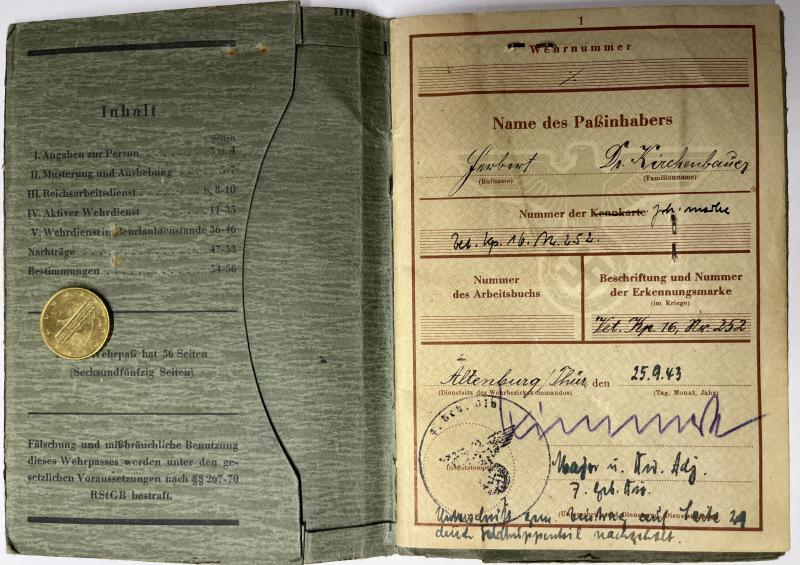 Inhalt
Seiten
I. Angaben zur Person 3 u. 4
II. Musterung und Aushebung 5-7
III. Reichsarbeitsdienst 6, 8-10
IV. Aktiver Wehrdienst 11-35
V. Wehrdienst im Beurlaubtenstande 36-46
Nachträge 47-53
Bestimmungen 54-56
Wehrpaß hat 56 Seiten
(Sechsundfünfzig Seiten)
Fälschung und mißbräuchliche Benutzung
dieses Wehrpasses werden unter den ge-
setzlichen Voraussetzungen nach §§ 267-70
RStGB bestraft.
1
Wehrnummer
Name des Paßinhabers
Herbert Dr. Kirchenbauer
(Rufname) (Familienname)
Nummer der Kennkarte
Vet. Kp. 16. Nr. 252.
Nummer
des Arbeitsbuchs
Beschriftung und Nummer
der Erkennungsmarke
(im Kriege)
Vet. Kp. 16, Nr. 252
Altenburg/Thür den 25.9.43
(Dienstsitz des Wehrbezirkskommandos) (Tag, Monat, Jahr)
Major u. Div. Adj.
7. Geb. Div.
Unterschrift gem. auf Seite 29
durch nachgeholt.